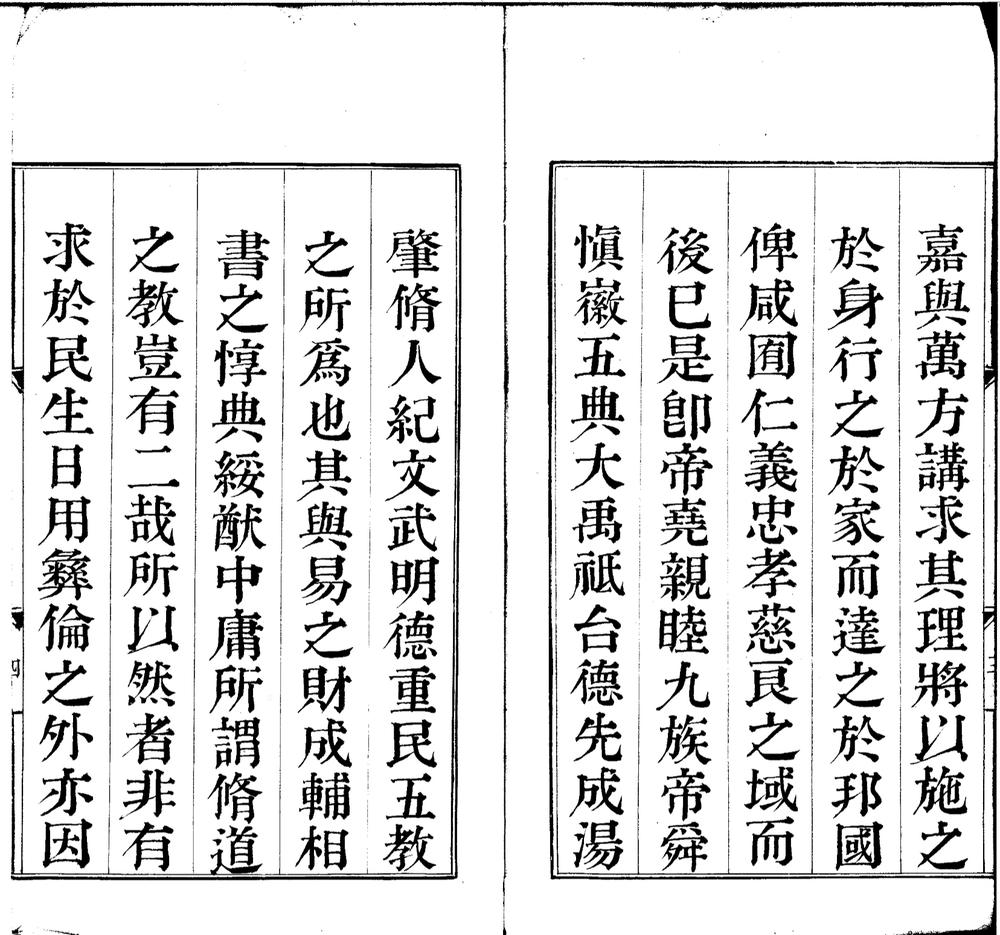 嘉與萬方講求其理將以施之
於身行之於家而達之於邦國
俾咸囿仁義忠孝慈良之域而
後已是卽帝堯親睦九族帝舜
愼徽五典大禹祗台德先成湯
肇脩人紀文武明德重民五教
之所爲也其與易之財成輔相
書之惇典綏猷中庸所謂脩道
之教豈有二哉所以然者非有
求於民生日用彝倫之外亦因
四